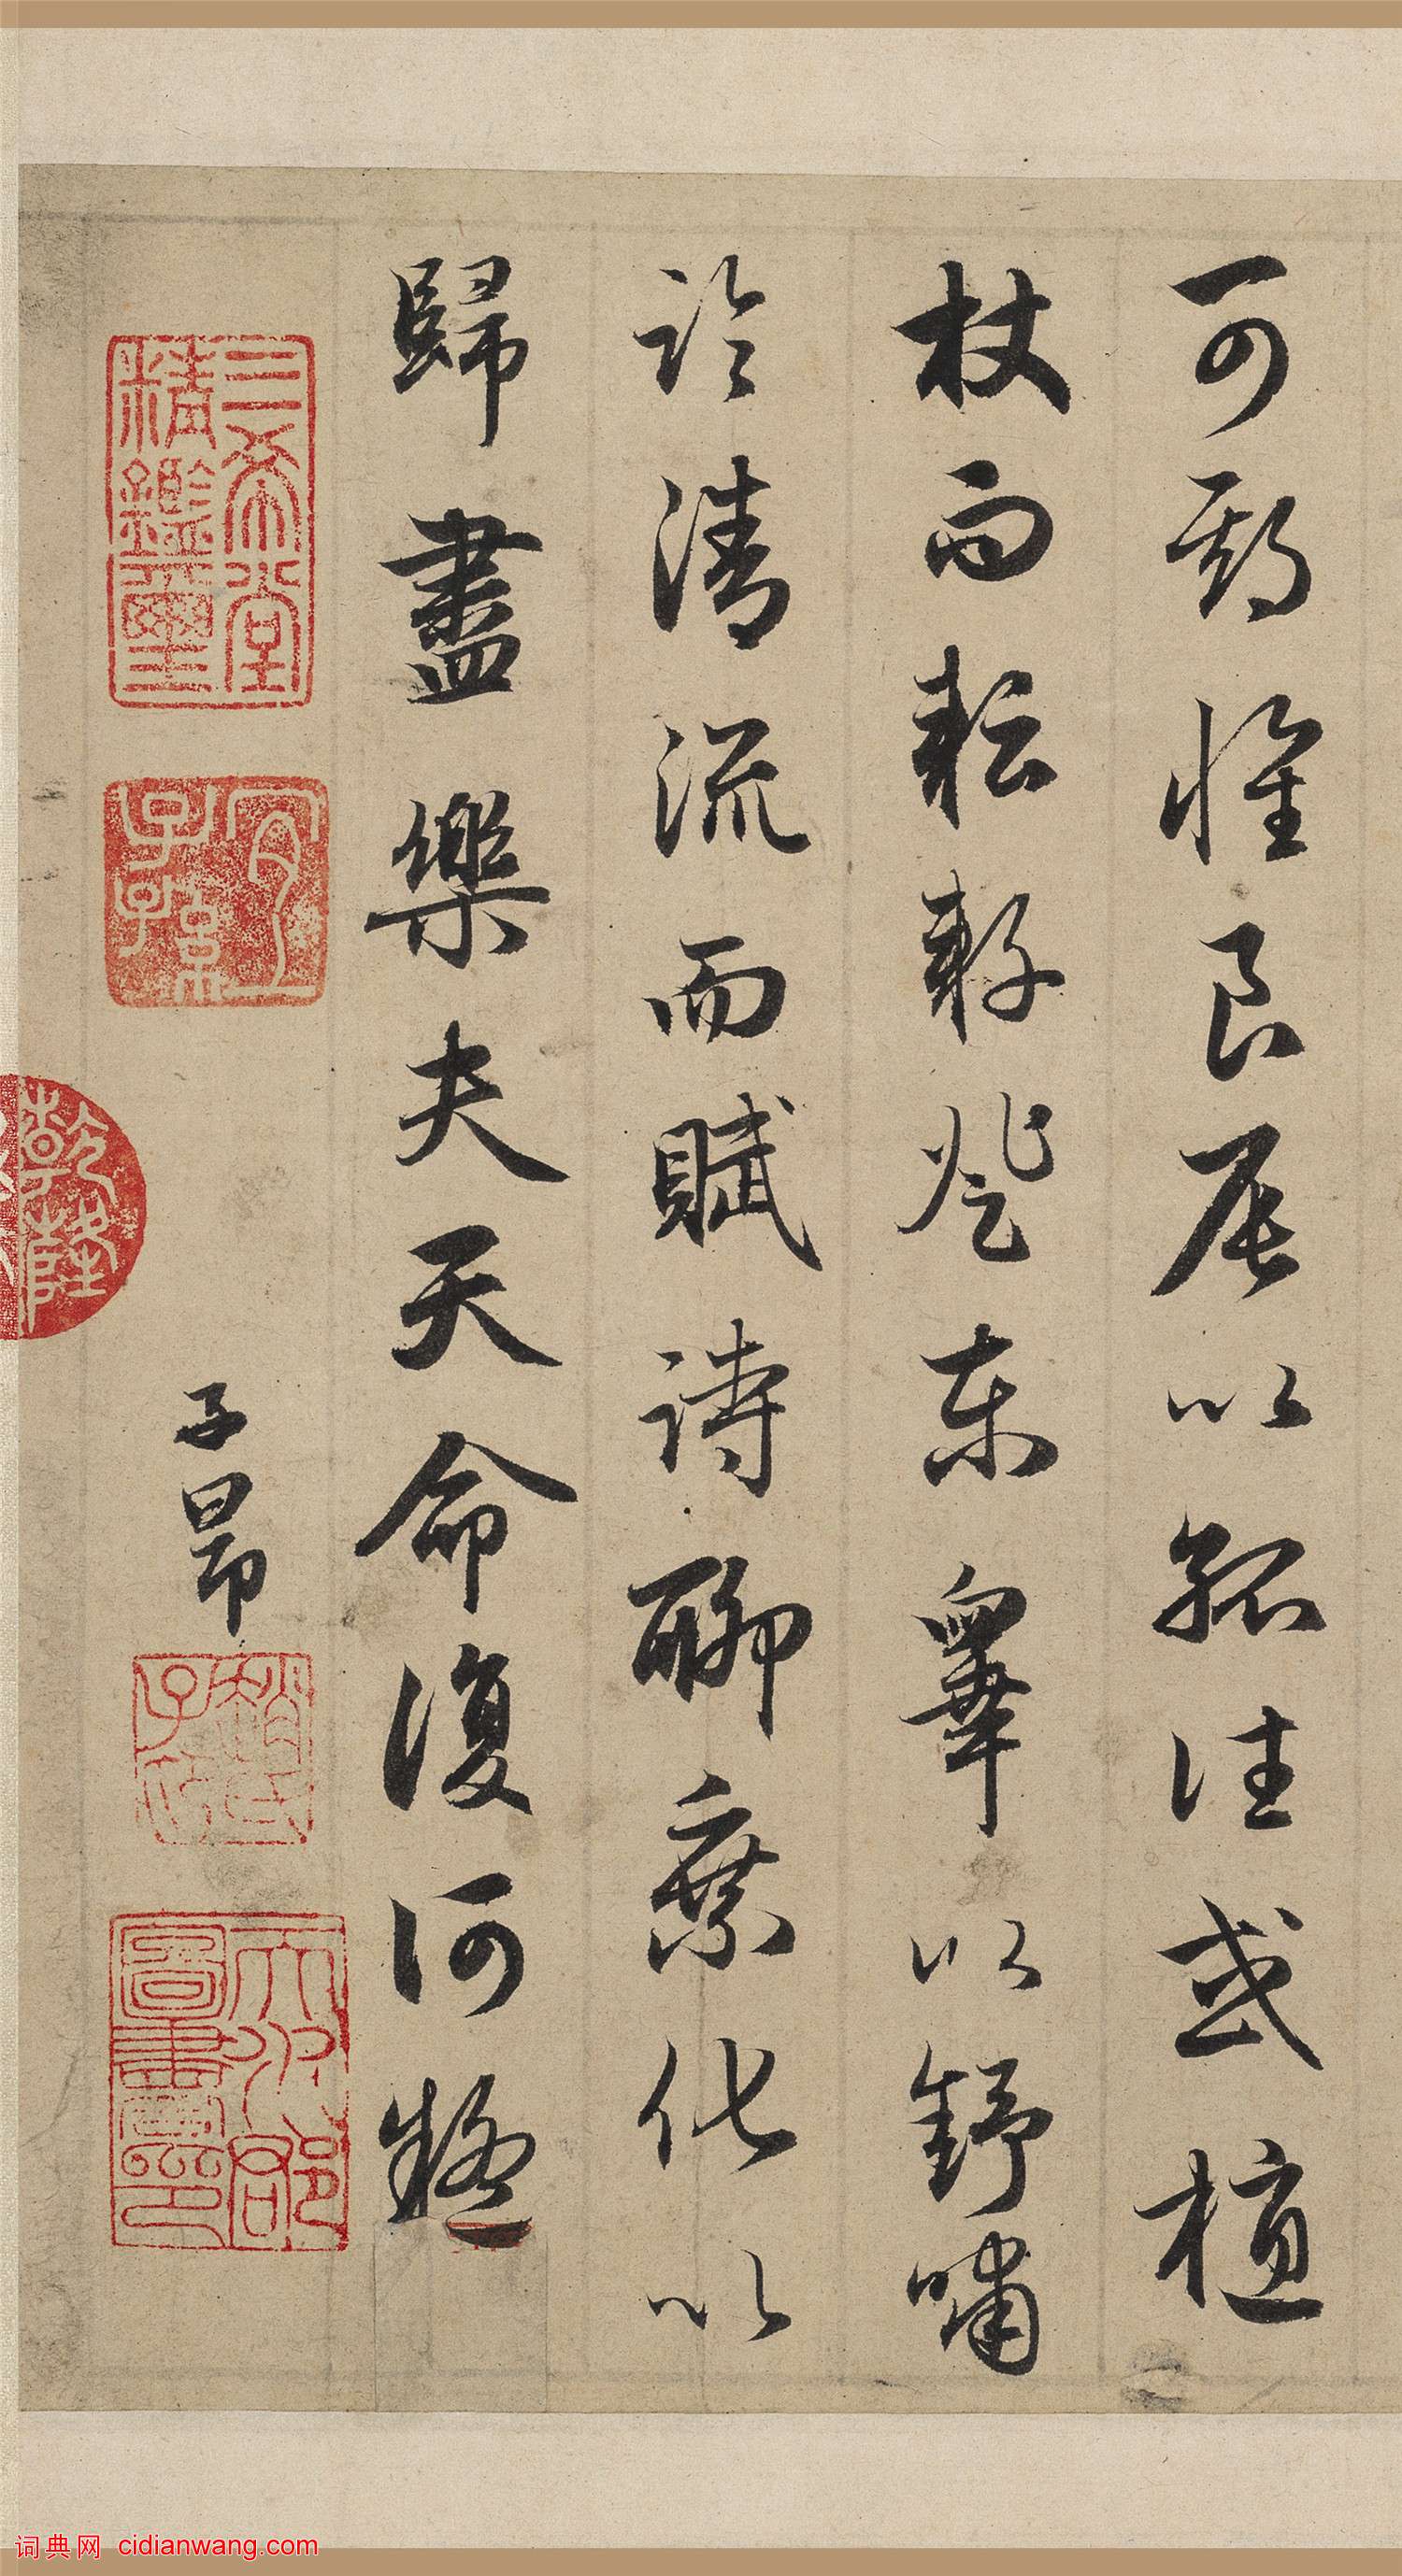 可期惟良辰以孤往或植
杖而耘耔登東皋以舒嘯
臨清流而賦詩聊乘化以
歸盡樂夫天命復何疑
子昂
三希堂精鑑璽
宜子孫
乾隆
趙氏子昂
天水郡圖書印
词典网 cidianwang.com